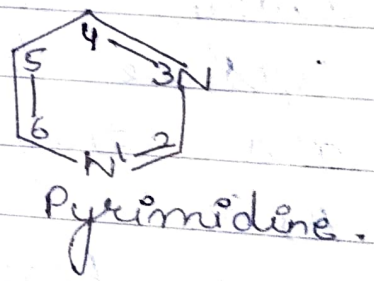 4
5 3 N
6 2
N 1
Pyrimidine.